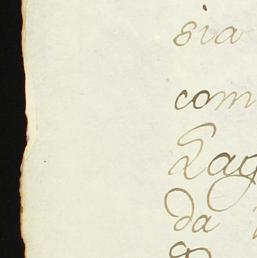 sia
com
Lag
da